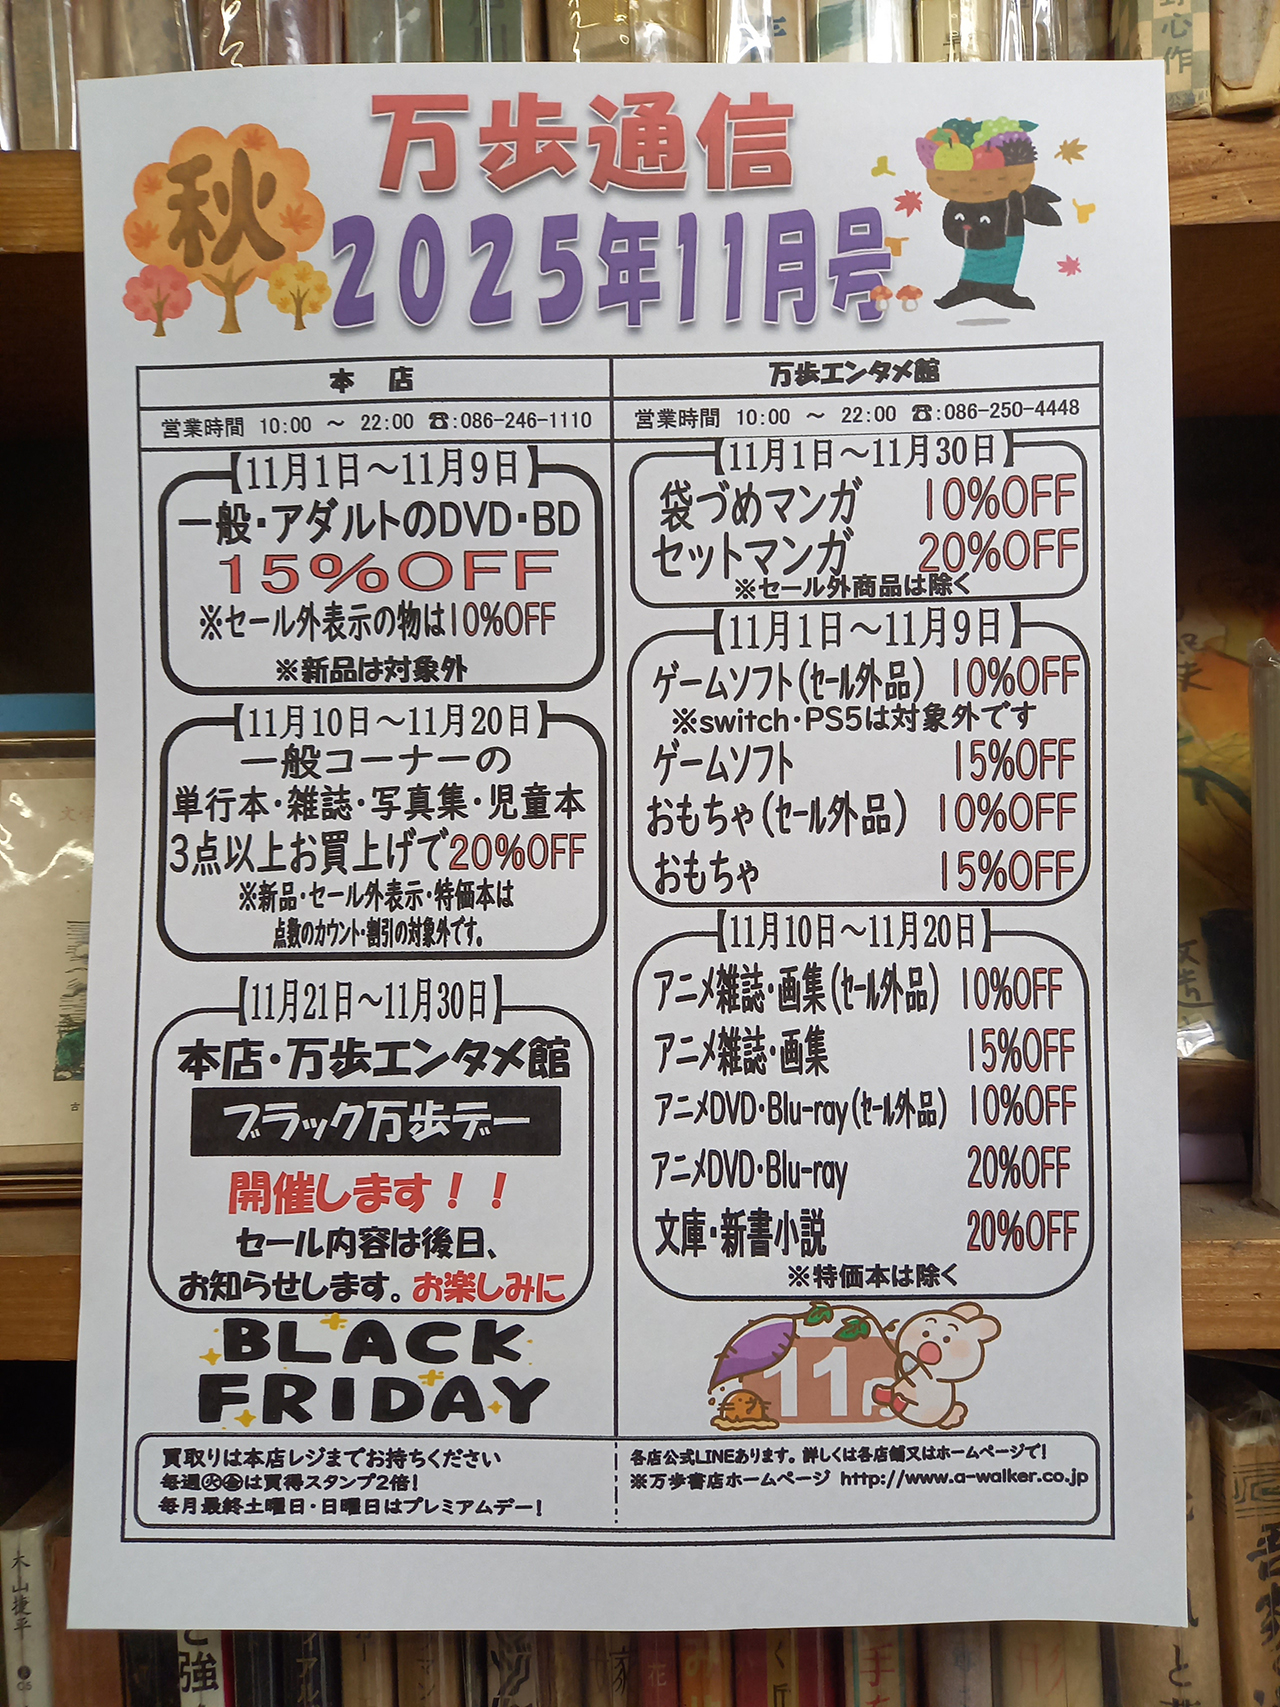 万歩通信
秋
2025年11月号
本 店
営業時間 10:00 ～ 22:00 ☎:086-246-1110
【11月1日～11月9日】
一般・アダルトのDVD・BD
15%OFF
※セール外表示の物は10%OFF
※新品は対象外
【11月10日～11月20日】
一般コーナーの
単行本・雑誌・写真集・児童本
3点以上お買上げで20%OFF
※新品・セール外表示・特価本は
点数のカウント・割引の対象外です。
【11月21日～11月30日】
本店・万歩エンタメ館
ブラック万歩デー
開催します！！
セール内容は後日、
お知らせします。お楽しみに
BLACK
FRIDAY
万歩エンタメ館
営業時間 10:00 ～ 22:00 ☎:086-250-4448
【11月1日～11月30日】
袋づめマンガ 10%OFF
セットマンガ 20%OFF
※セール外商品は除く
【11月1日～11月9日】
ゲームソフト(セール外品) 10%OFF
※switch・PS5は対象外です
ゲームソフト 15%OFF
おもちゃ(セール外品) 10%OFF
おもちゃ 15%OFF
【11月10日～11月20日】
アニメ雑誌・画集(セール外品) 10%OFF
アニメ雑誌・画集 15%OFF
アニメDVD・Blu-ray(セール外品) 10%OFF
アニメDVD・Blu-ray 20%OFF
文庫・新書小説 20%OFF
※特価本は除く
11月
買取りは本店レジまでお持ちください
毎週㊋㊎は買得スタンプ2倍!
毎月最終土曜日・日曜日はプレミアムデー!
各店公式LINEあります。詳しくは各店舗又はホームページで!
※万歩書店ホームページ http://www.a-walker.co.jp
木山捷平